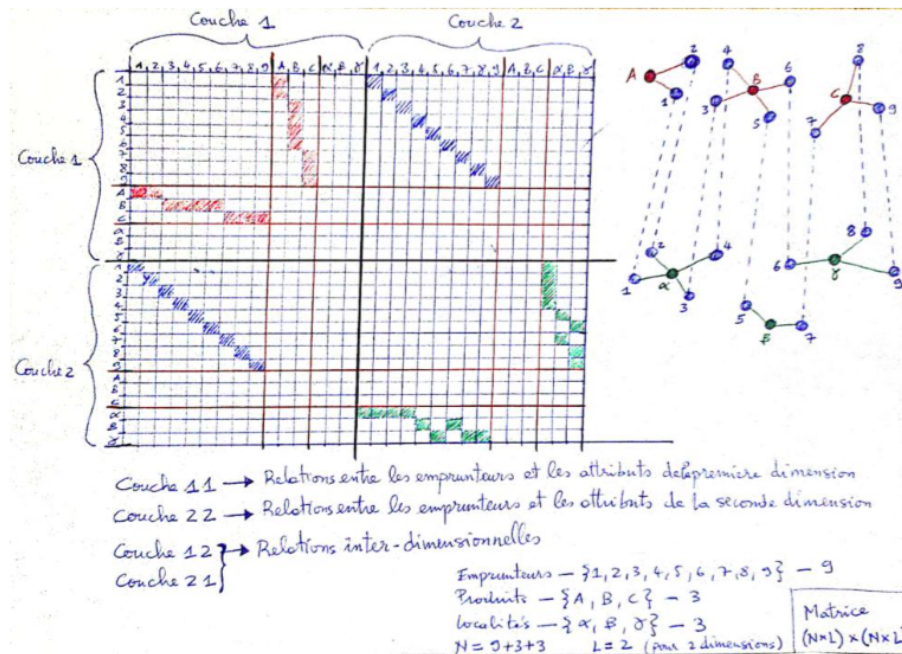 Couche 1 Couche 2
A B C α, β, γ 1, 2, 3, 4, 5, 6, 7, 8, 9 A, B, C α, β, γ
Couche 1
1
2
3
4
5
6
7
8
9
A
B
C
Couche 2
1
2
3
4
5
6
7
8
9
A
2 4 8
A B 6
1 3 5 C 9
7
2 4 8
1 α 6 γ
3 9
5 β 7
Couche 11 → Relations entre les emprunteurs et les attributs de la première dimension
Couche 22 → Relations entre les emprunteurs et les attributs de la seconde dimension
Couche 12 } → Relations inter-dimensionnelles
Couche 21
Emprunteurs — {1, 2, 3, 4, 5, 6, 7, 8, 9} — 9
Produits — {A, B, C} — 3
Localités — {α, β, γ} — 3
N = 9+3+3 L = 2 (pour 2 dimensions)
Matrice
(N×L) × (N×L)